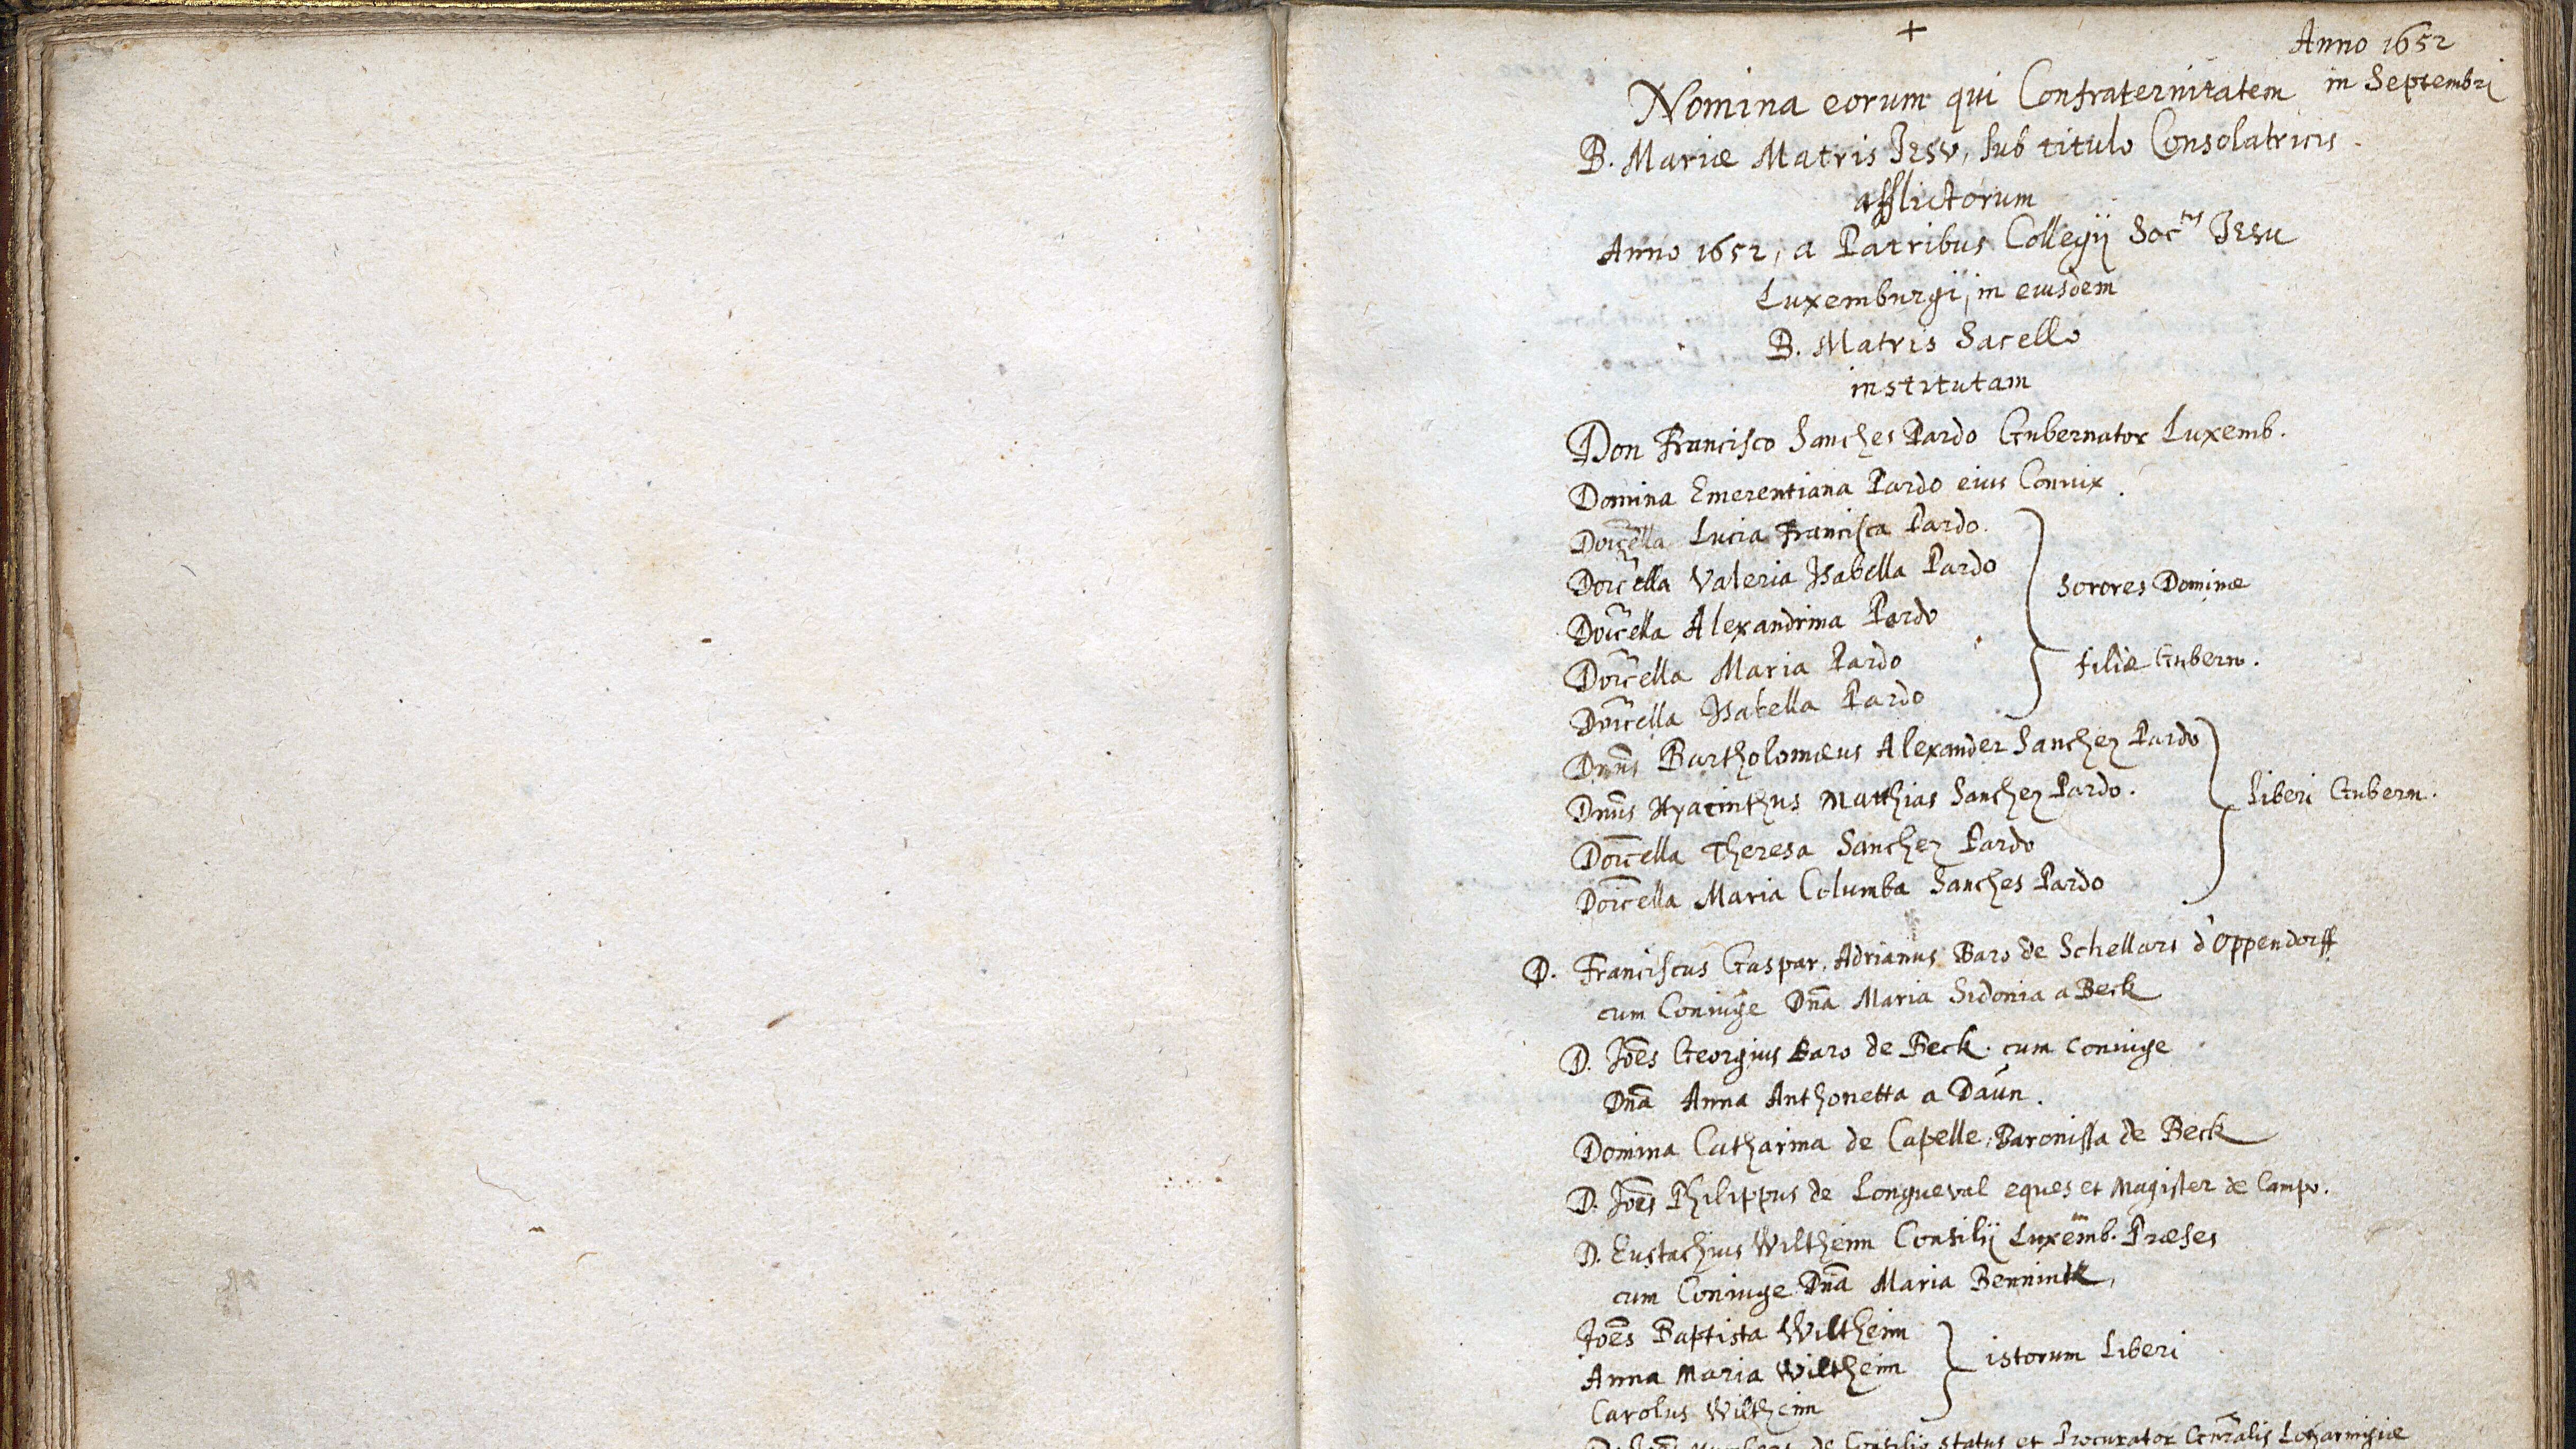 +
Anno 1652
in Septembri
Nomina eorum qui Confraternitatem
B. Mariæ Matris Iesv, sub titulo Consolatricis
afflictorum
Anno 1652, a Patribus Collegij Soctis Iesu
Luxemburgi, in eiusdem
B. Matris Sacello
institutam
Don Francisco Sanches Pardo Gubernator Luxemb.
Domina Emerentiana Pardo eius Coniux.
Domcella Lucia Francisca Pardo.
Doicella Valeria Isabella Pardo
Doicella Alexandrina Pardo
Sorores Dominæ
Doicella Maria Pardo
filiæ Gubern.
Doicella Isabella Pardo
Dnūs Bartholomæus Alexander Sanchez Pardo
Dnūs Hyacinthus Matthias Sanchez Pardo.
Liberi Gubern.
Doicella Theresa Sanchez Pardo
Doicella Maria Columba Sanches Pardo
D. Franciscus Gaspar Adrianus Baro de Schellart d'Oppendorff
cum Coniuge Dnā Maria Sidonia a Beck
D. Joēs Georgius Baro de Beck cum coniuge
Dnā Anna Anthonetta a Daun.
Domina Catharina de Capelle, Baronissa de Beck
D. Joēs Philippus de Longueval eques et Magister de Campo.
D. Eustachius Wiltheim Consilij Luxemb. Præses
cum Coniuge Dnā Maria Bennink,
Joēs Baptista Wiltheim
Anna Maria Wiltheim
istorum Liberi
Carolus Wiltheim
de Consilio status et Procurator Gnralis Lotharingiæ